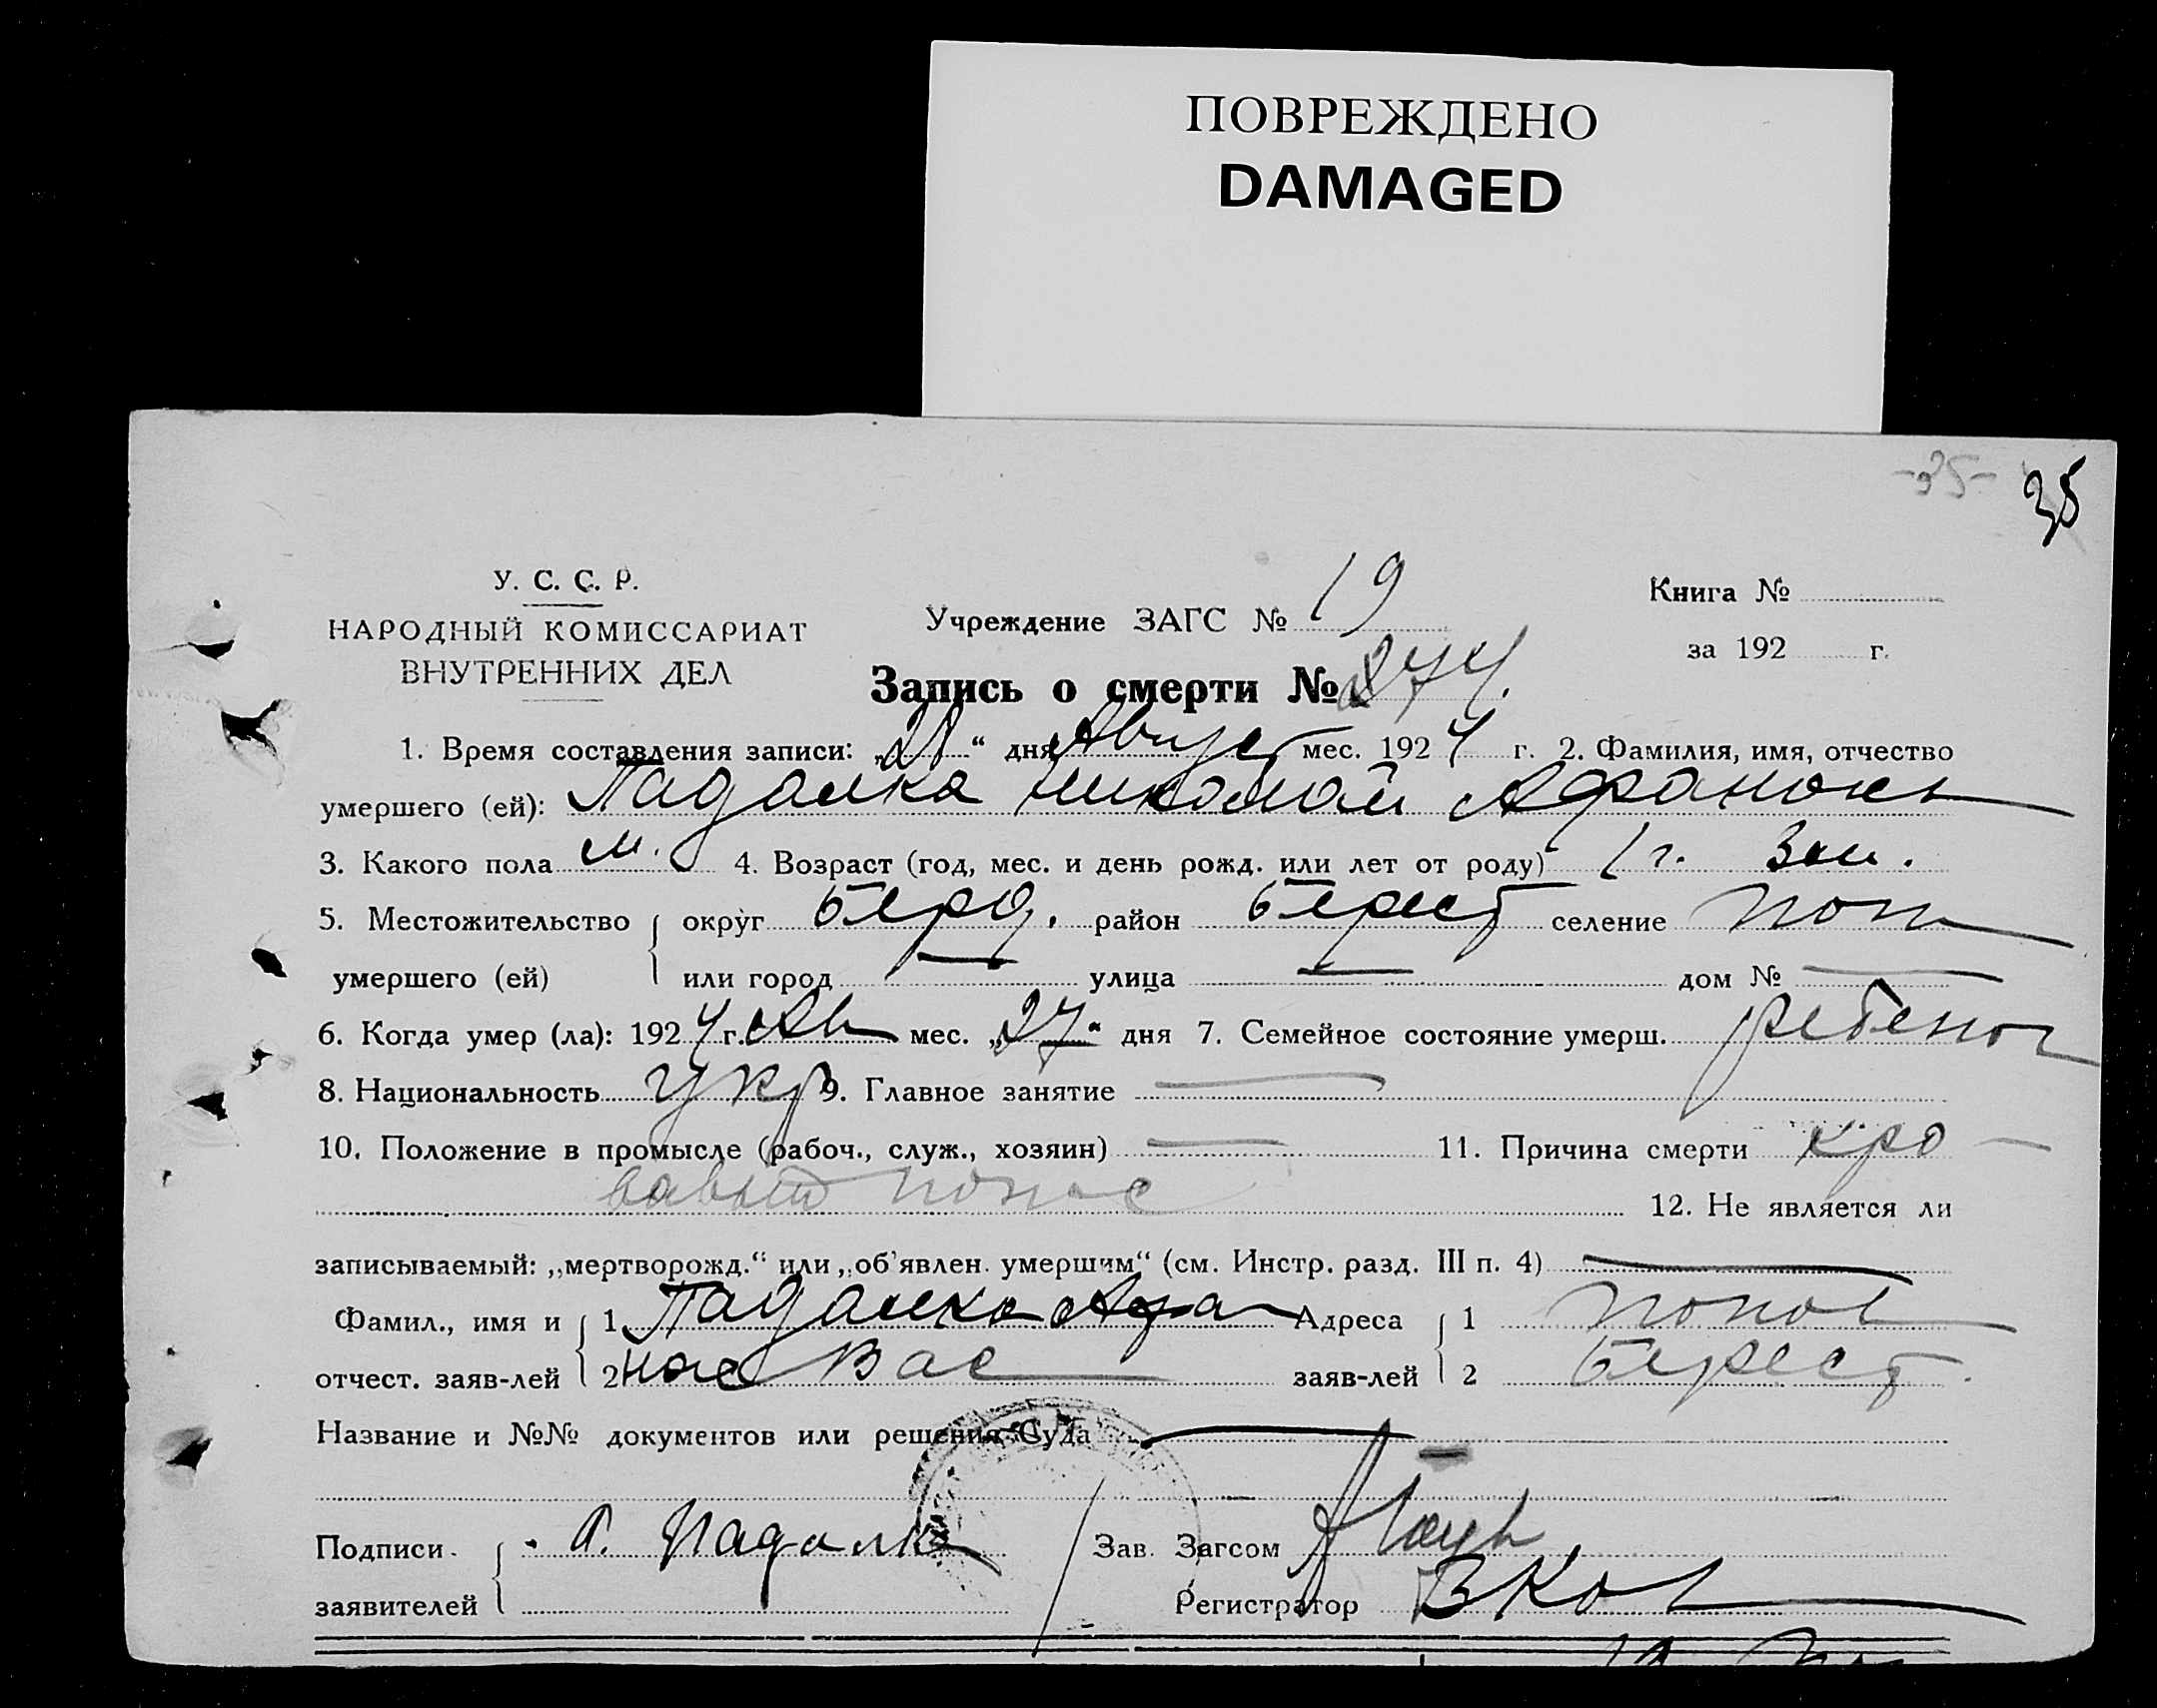 ПОВРЕЖДЕНО
DAMAGED
-35- 35
У. С. С. Р.
НАРОДНЫЙ КОМИССАРИАТ
ВНУТРЕННИХ ДЕЛ
Учреждение ЗАГС № 19
Книга №
за 192 г.
Запись о смерти № 274.
1. Время составления записи: „28“ дня Август мес. 1924 г. 2. Фамилия, имя, отчество
умершего (ей): Падалка Николай Афанасьев
3. Какого пола м. 4. Возраст (год, мес. и день рожд. или лет от роду) 1 г. 3 м.
5. Местожительство округ Берд. район Берест селение Поп
умершего (ей) или город — улица — дом № —
6. Когда умер (ла): 1924 г. Ав мес. „27“ дня 7. Семейное состояние умерш. ребенок
8. Национальность укр 9. Главное занятие —
10. Положение в промысле (рабоч., служ., хозяин) — 11. Причина смерти кро-
вавый понос 12. Не является ли
записываемый: „мертворожд.“ или „об'явлен. умершим“ (см. Инстр. разд. III п. 4) —
Фамил., имя и 1 Падалка Афа Адреса 1 Попов
отчест. заяв-лей 2 нас Вас заяв-лей 2 Берест.
Название и №№ документов или решения Суда —
Подписи А. Падалка Зав. Загсом
заявителей Регистратор